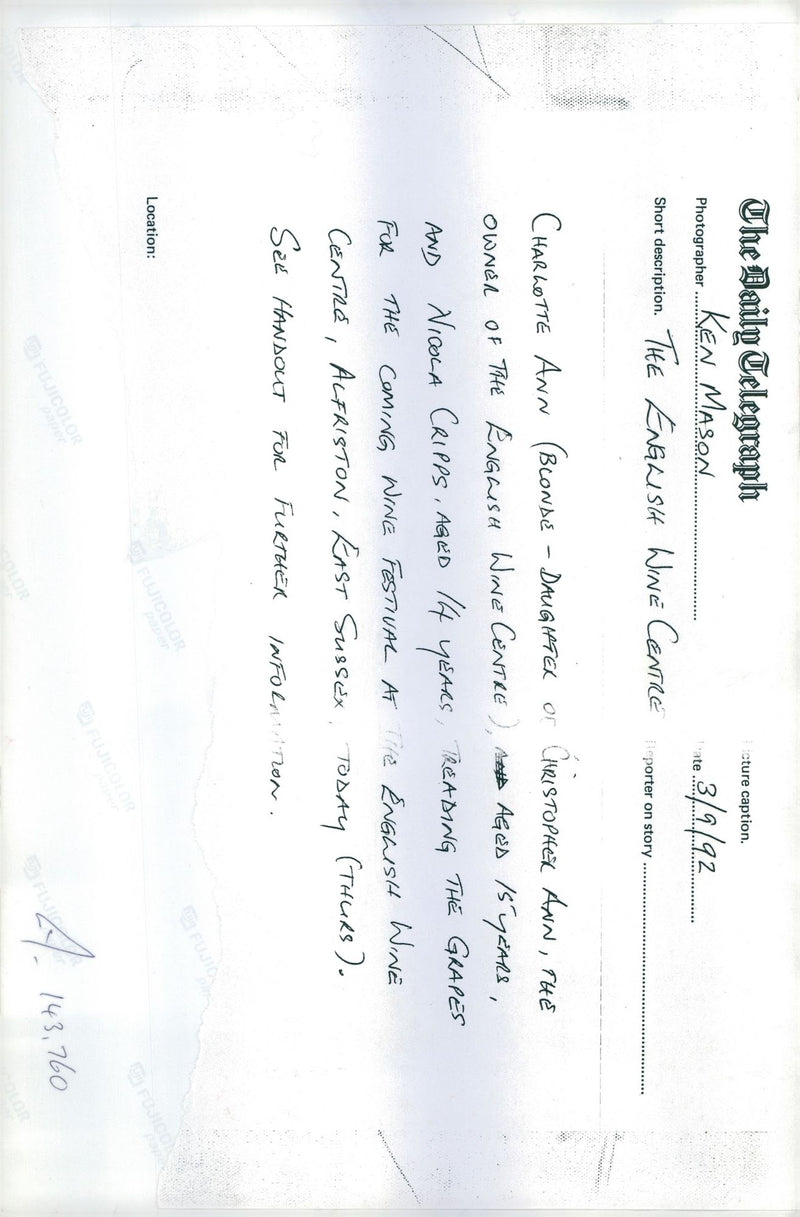 The Daily Telegraph
Picture caption.
Photographer KEN MASON Date 3/9/92
Short description. THE ENGLISH WINE CENTRE Reporter on story
CHARLOTTE ANN (BLONDE - DAUGHTER OF CHRISTOPHER ANN, THE
OWNER OF THE ENGLISH WINE CENTRE), AGED 15 YEARS,
AND NICOLA CRIPPS, AGED 14 YEARS, TREADING THE GRAPES
FOR THE COMING WINE FESTIVAL AT THE ENGLISH WINE
CENTRE, ALFRISTON, EAST SUSSEX, TODAY (THURS).
SEE HANDOUT FOR FURTHER INFORMATION.
Location:
143,760
FUJICOLOR
paper
FUJICOLOR
paper
FUJICOLOR
paper
FUJICOLOR
FUJICOLOR
paper